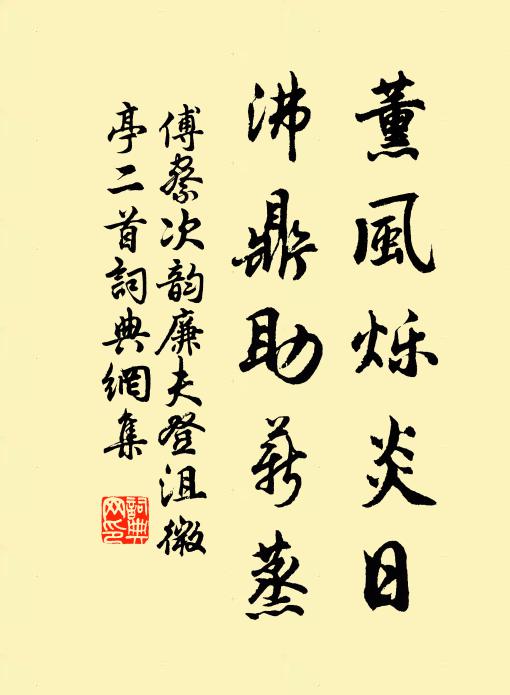 薰風烁炎日
沸鼎助薪蒸
傅察次韵廉夫登沮徽
亭二首詞典網集
詞典
网印